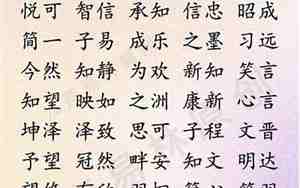 悦可 智信 承知 信忠 昭成
简一 子易 成乐 之墨 习远
今然 知静 为欢 新知 笑言
知望 映如 之洲 康新 心言
坤泽 泽致 思可 子程 文晋
予望 冠然 畔安 知文 明达